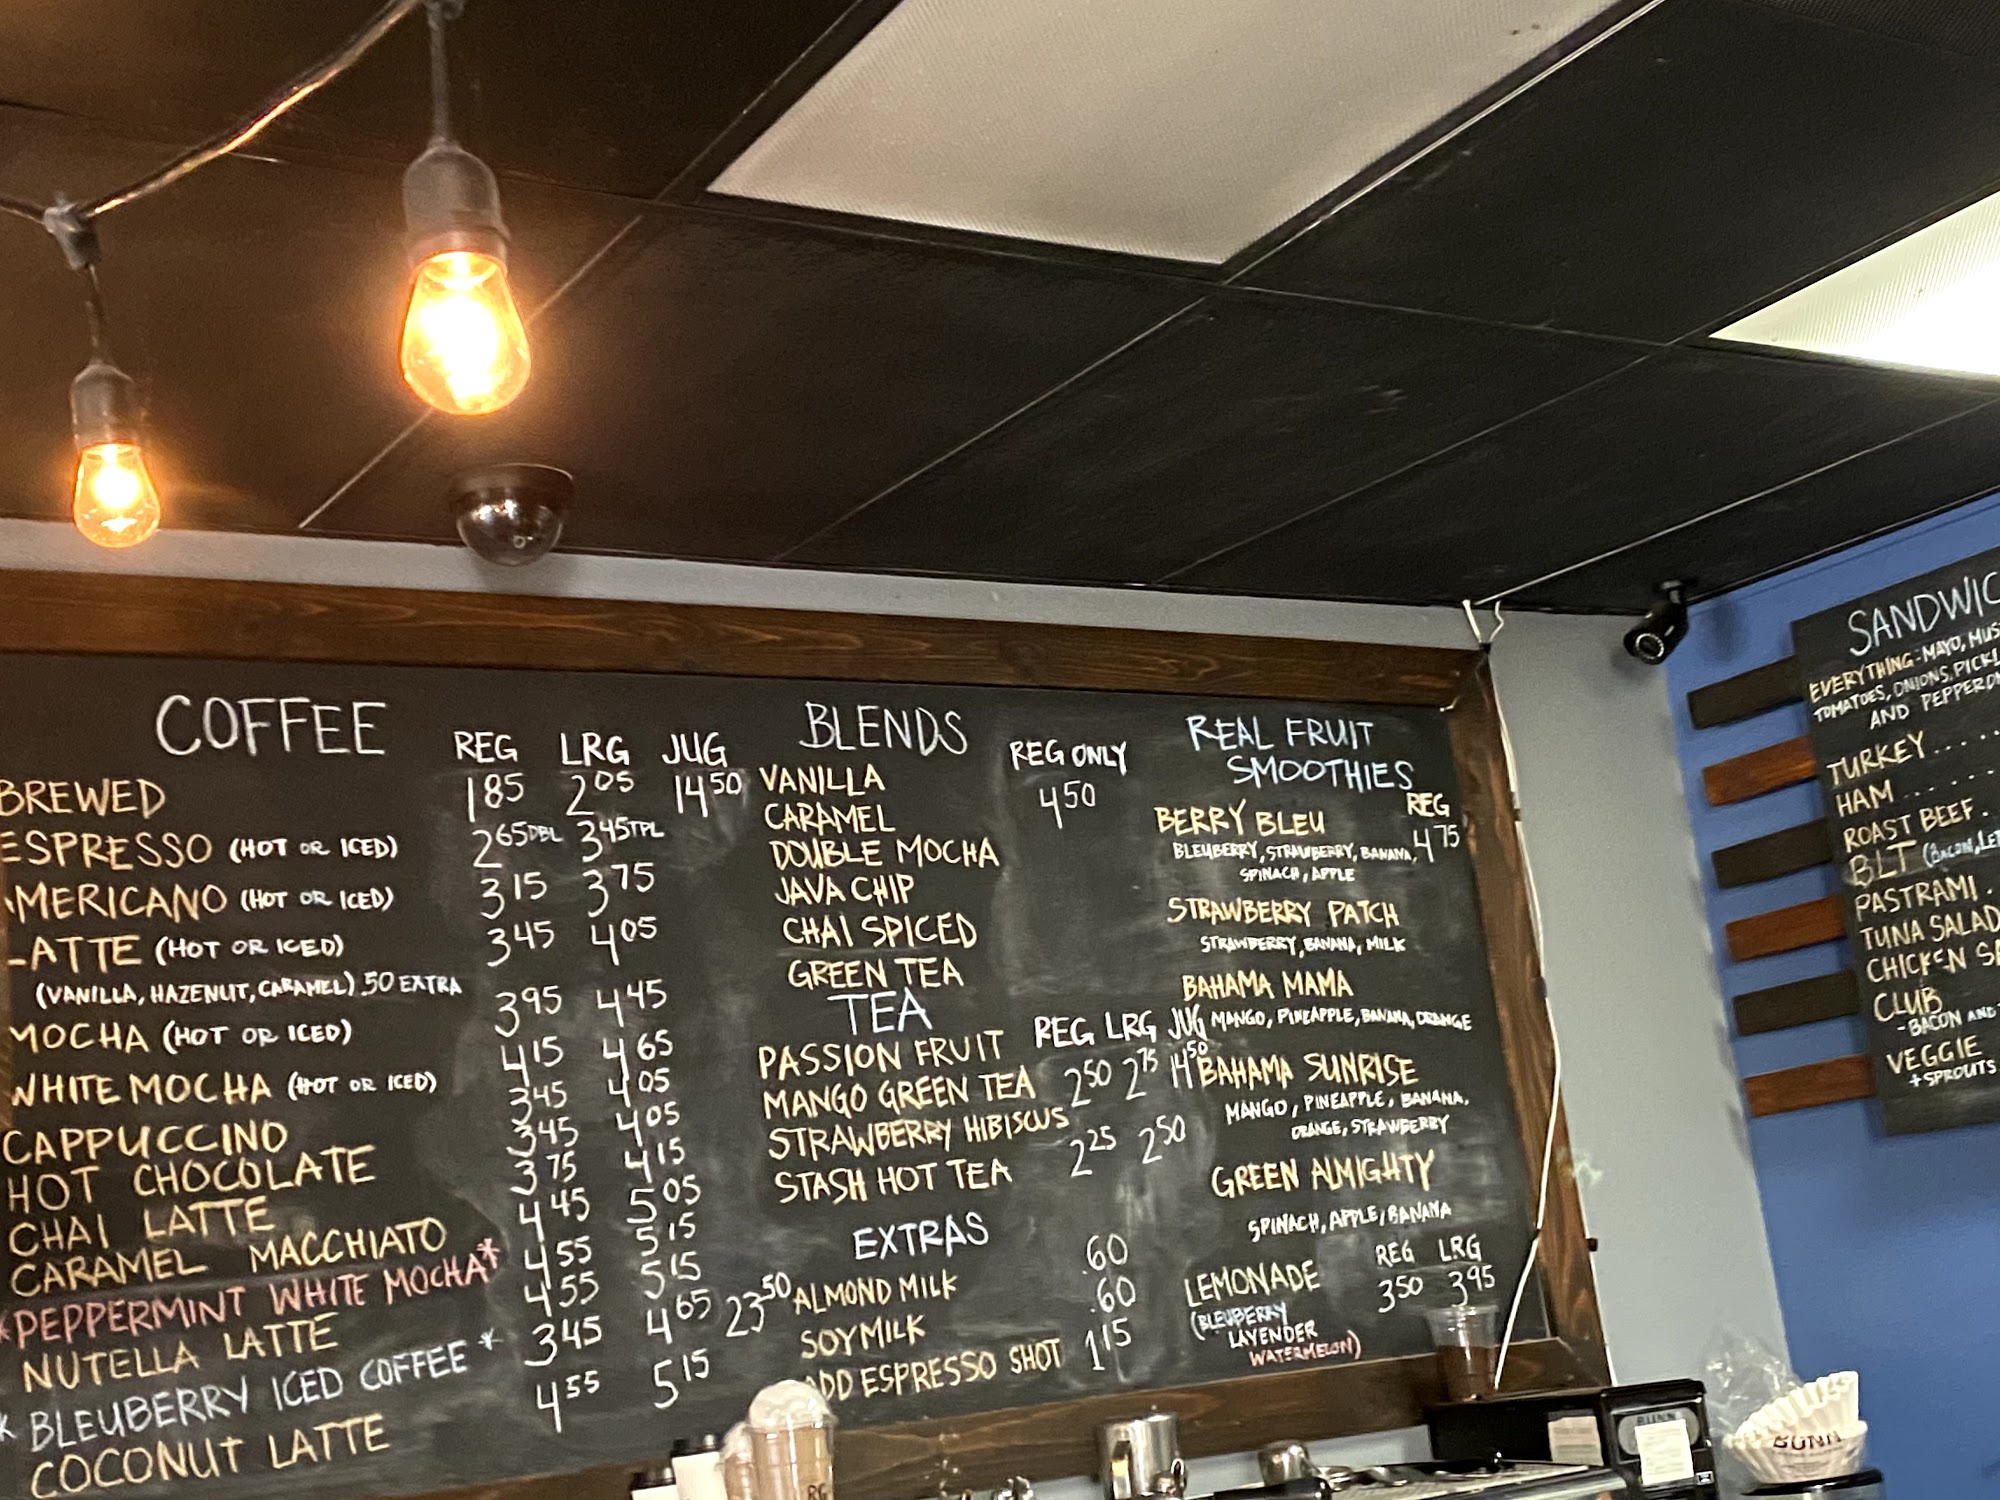 COFFEE
REG LRG JUG
BREWED 1.85 2.05 14.50
ESPRESSO (HOT OR ICED) 2.65 DBL 3.45 TPL
AMERICANO (HOT OR ICED) 3.15 3.75
LATTE (HOT OR ICED) 3.45 4.05
(VANILLA, HAZENUT, CARAMEL) .50 EXTRA
MOCHA (HOT OR ICED) 3.95 4.45
WHITE MOCHA (HOT OR ICED) 4.15 4.65
CAPPUCCINO 3.45 4.05
HOT CHOCOLATE 3.45 4.05
CHAI LATTE 3.75 4.15
CARAMEL MACCHIATO 4.45 5.05
*PEPPERMINT WHITE MOCHA* 4.55 5.15
NUTELLA LATTE 4.55 5.15
* BLEUBERRY ICED COFFEE * 3.45 4.65 23.50
COCONUT LATTE 4.55 5.15
BLENDS
REG ONLY
4.50
VANILLA
CARAMEL
DOUBLE MOCHA
JAVA CHIP
CHAI SPICED
GREEN TEA
TEA
REG LRG JUG
PASSION FRUIT
MANGO GREEN TEA 2.50 2.75 14.50
STRAWBERRY HIBISCUS
STASH HOT TEA 2.25 2.50
EXTRAS
ALMOND MILK .60
SOYMILK .60
ADD ESPRESSO SHOT 1.15
REAL FRUIT
SMOOTHIES
REG
BERRY BLEU 4.75
BLEUBERRY, STRAWBERRY, BANANA,
SPINACH, APPLE
STRAWBERRY PATCH
STRAWBERRY, BANANA, MILK
BAHAMA MAMA
MANGO, PINEAPPLE, BANANA, ORANGE
BAHAMA SUNRISE
MANGO, PINEAPPLE, BANANA,
ORANGE, STRAWBERRY
GREEN ALMIGHTY
SPINACH, APPLE, BANANA
REG LRG
LEMONADE 3.50 3.95
(BLEUBERRY
LAVENDER
WATERMELON)
SANDWIC
EVERYTHING - MAYO, MUS
TOMATOES, ONIONS, PICKL
AND PEPPERON
TURKEY.....
HAM....
ROAST BEEF.
BLT (BACON, LET
PASTRAMI.
TUNA SALAD
CHICKEN SA
CLUB
- BACON AND
VEGGIE
+ SPROUTS
BUNN
BUNN